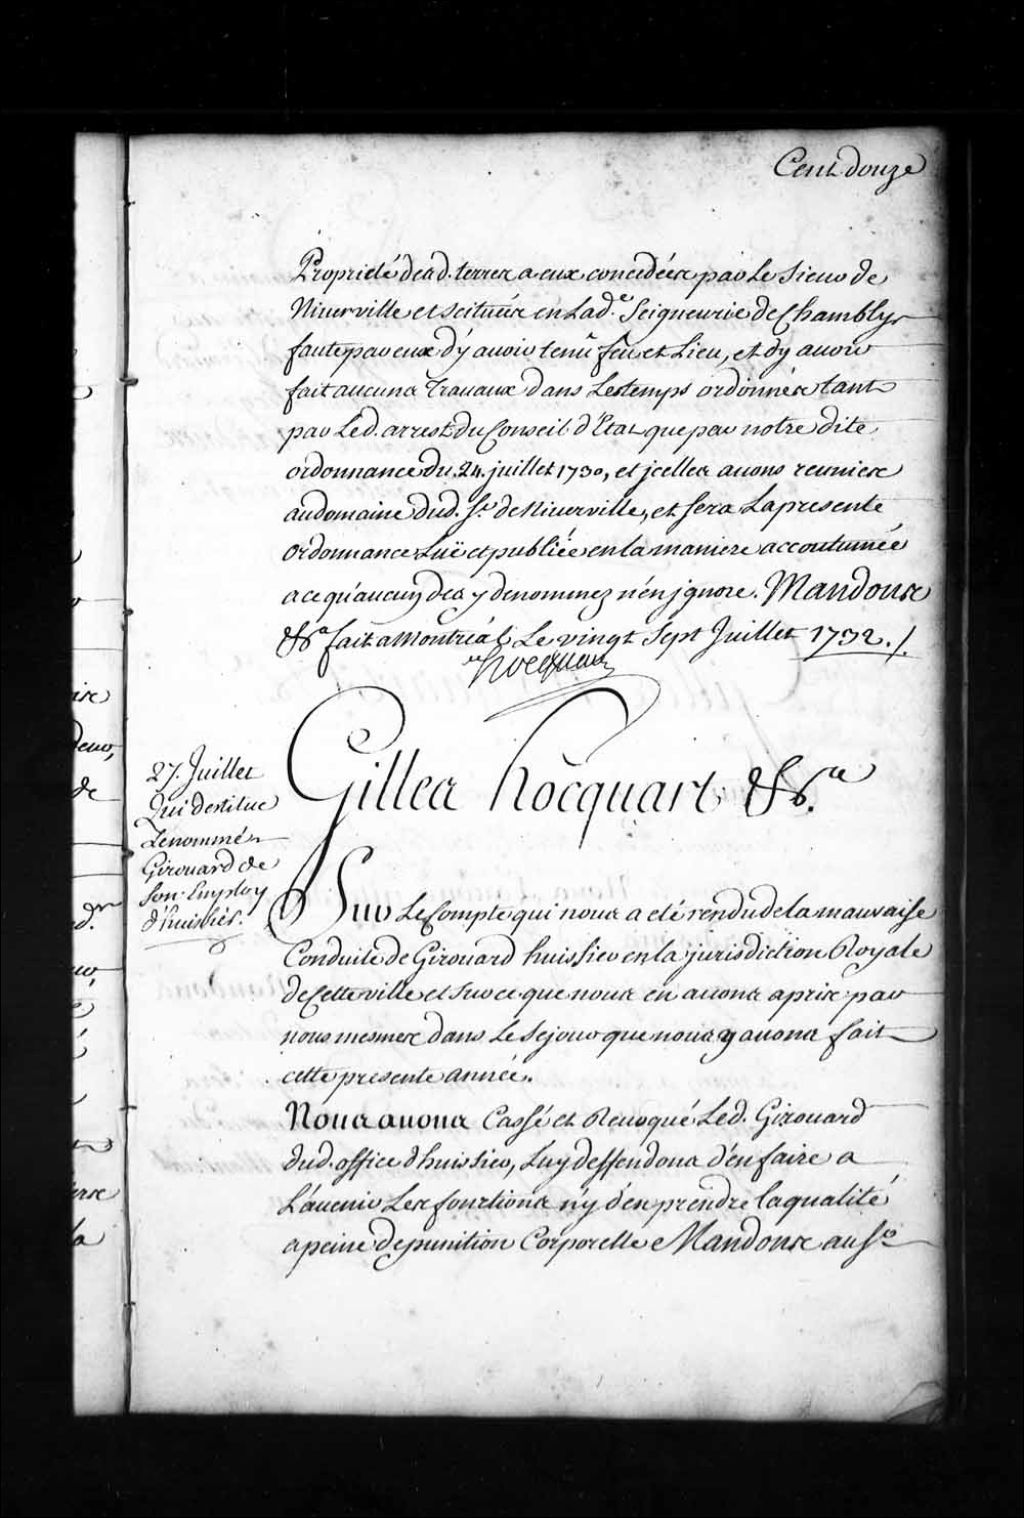 Cent douze
Proprieté desd. terres a eux concedées par Le Sieur de
Niverville et scituées en Lad.e Seigneurie de Chambly,
faute par eux d'y avoir tenû feu et Lieu, et d'y avoir
fait aucuns Travaux dans Les temps ordonnés tant
par Led. arrest du Conseil d'Etat que par notre dite
ordonnance du 24. juillet 1730, et jcelles avons reunies
au domaine dud. Sr. de Niverville, et sera La presente
Ordonnance Luë et publiée en la maniere accoutumée
a ce qu'aucun des y denommez n'en jgnore. Mandons
&c.a fait a Montréal Le vingt Sept Juillet 1732./.
Hocquart
Gilles hocquart &c.a
27. Juillet
Qui destitue
Le nommé
Girouard de
son Employ
d'huissier.
Sur Le Compte qui nous a eté rendu de la mauvaise
Conduite de Girouard huissier en la jurisdiction Royale
de Cette ville et sur ce que nous en avons apris par
nous mesmes dans Le Sejour que nous y avons fait
cette presente année.
Nous avons Cassé et Revoqué Led. Girouard
dud. office d'huissier, Luy deffendons d'en faire a
L'avenir Les fonctions n'y d'en prendre la qualité
a peine de punition Corporelle Mandons au Sr